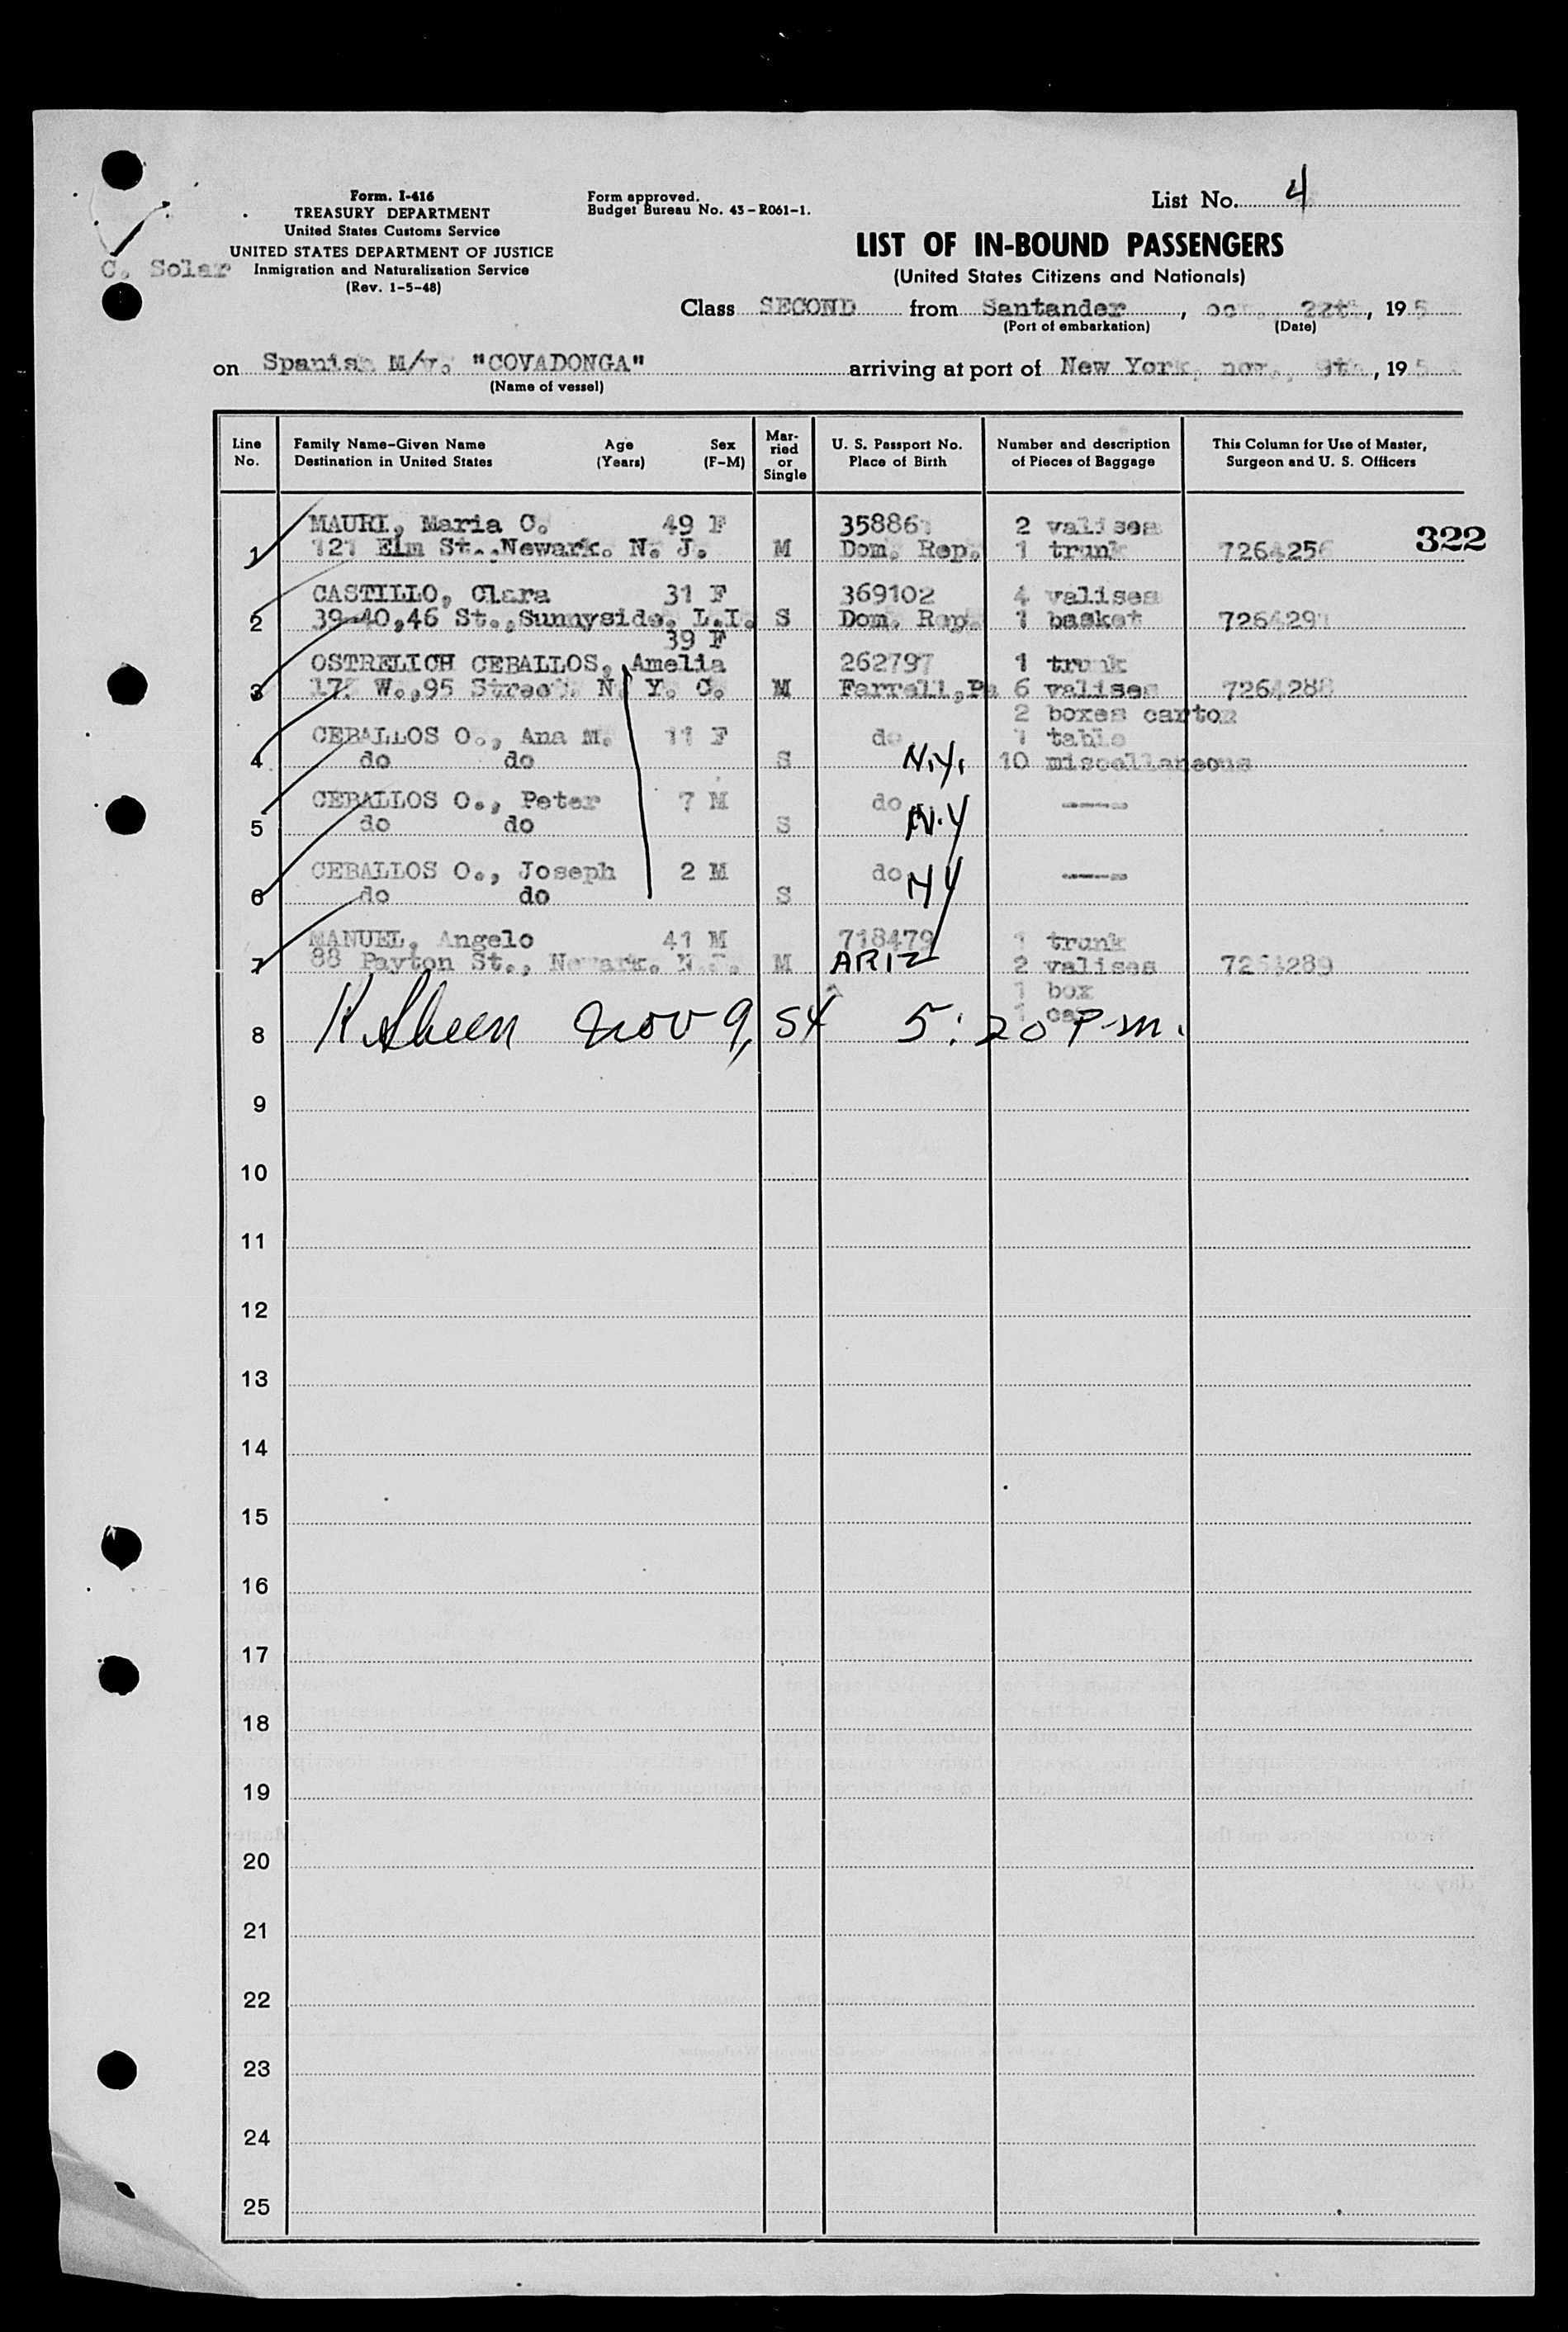 Form. I-416
TREASURY DEPARTMENT
United States Customs Service
UNITED STATES DEPARTMENT OF JUSTICE
Inmigration and Naturalization Service
(Rev. 1-5-48)
C. Solar
Form approved.
Budget Bureau No. 43-R061-1.
List No. 4
LIST OF IN-BOUND PASSENGERS
(United States Citizens and Nationals)
Class SECOND from Santander, oc. 22th, 195
(Port of embarkation) (Date)
on Spanish M/v. "COVADONGA" arriving at port of New York, nov., 9th, 195
(Name of vessel)
Line No. Family Name-Given Name Destination in United States Age (Years) Sex (F-M) Married or Single U. S. Passport No. Place of Birth Number and description of Pieces of Baggage This Column for Use of Master, Surgeon and U. S. Officers
MAURI, Maria C. 49 F 35886 2 valises
322
1 121 Elm St., Newark. N. J. M Dom. Rep. 1 trunk 7264256
CASTILLO, Clara 31 F 369102 4 valises
2 39-40,46 St., Sunnyside. L.I. S Dom. Rep. 1 basket 726429
39 F
OSTRELICH CEBALLOS, Amelia 262797 1 trunk
3 17. W.,95 Street. N. Y. C. M Farrell,Pa 6 valises 7264288
2 boxes carton
CEBALLOS O., Ana M. 11 F do 1 table
4 do do S N.Y. 10 miscellaneous
CEBALLOS O., Peter 7 M do -----
5 do do S N.Y
CEBALLOS O., Joseph 2 M do -----
6 do do S NY
MANUEL, Angelo 41 M 718479 1 trunk
7 88 Payton St., Newark. N.J. M ARIZ 2 valises 7264289
1 box
1 ca
8 Nov 9, 54 5:20 P.m.
9
10
11
12
13
14
15
16
17
18
19
20
21
22
23
24
25